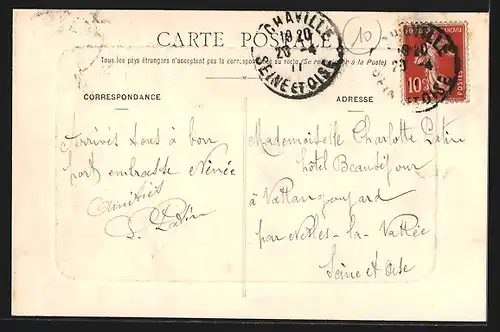 CARTE POSTALE
Tous les pays étrangers n'acceptent pas la correspondance au recto (Se renseigner à la Poste)
CHAVILLE
19 20
20 -4
11
SEINE ET OISE
10
10
POSTES
CORRESPONDANCE
ADRESSE
Arrivés tous à bon
port embrasse Nénée
Amitiés
Mademoiselle Charlotte Patin
hôtel Beauséjour
à Vallangoujard
par Nesles-la-Vallée
Seine et Oise